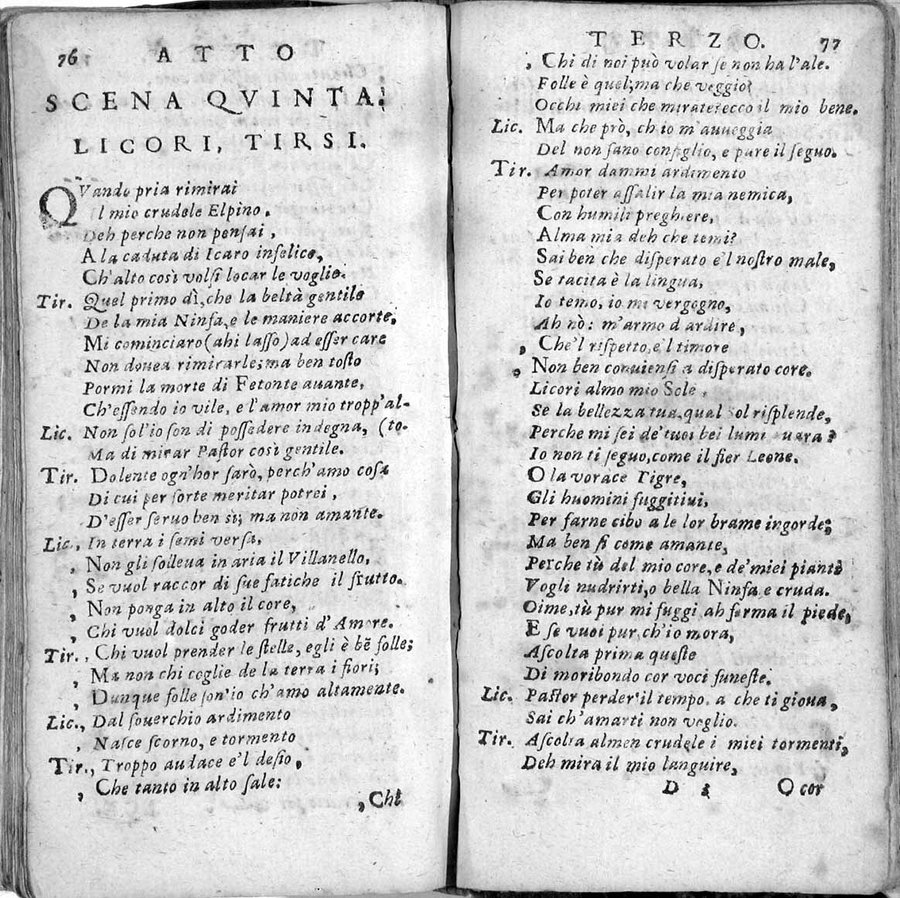 76 ATTO
SCENA QVINTA.
LICORI, TIRSI.
QVando pria rimirai
Il mio crudele Elpino,
Deh perche non pensai,
A la caduta di Icaro infelice,
Ch'alto così volsi locar le voglie.
Tir. Quel primo dì, che la beltà gentile
De la mia Ninfa, e le maniere accorte,
Mi cominciaro (ahi lasso) ad esser care
Non douea rimirarle; ma ben tosto
Pormi la morte di Fetonte auante,
Ch'essendo io vile, e l'amor mio tropp'al-
Lic. Non sol'io son di possedere indegna, (to.
Ma di mirar Pastor così gentile.
Tir. Dolente ogn'hor sarò, perch'amo cosa
Di cui per sorte meritar potrei,
D'esser seruo ben sì; ma non amante.
Lic., In terra i semi versa,
, Non gli solleua in aria il Villanello,
, Se vuol raccor di sue fatiche il frutto.
, Non ponga in alto il core,
, Chi vuol dolci goder frutti d'Amore.
Tir., Chi vuol prender le stelle, egli è bẽ folle;
, Ma non chi coglie de la terra i fiori;
, Dunque folle son'io ch'amo altamente.
Lic., Dal souerchio ardimento
, Nasce scorno, e tormento
Tir., Troppo audace e'l desio,
, Che tanto in alto sale:
, Chi
TERZO. 77
, Chi di noi può volar se non ha l'ale.
Folle è quel; ma che veggio?
Occhi miei che mirate? ecco il mio bene.
Lic. Ma che prò, ch'io m'auueggia
Del non sano consiglio, e pure il seguo.
Tir. Amor dammi ardimento
Per poter assalir la mia nemica,
Con humili preghiere,
Alma mia deh che temi?
Sai ben che disperato è'l nostro male,
Se tacita è la lingua,
Io temo, io mi vergogno,
Ah nò: m'armo d'ardire,
, Che'l rispetto, e'l timore
, Non ben conuiensi a disperato core.
Licori almo mio Sole,
Se la bellezza tua, qual Sol risplende,
Perche mi sei de' tuoi bei lumi auara?
Io non ti seguo, come il fier Leone.
O la vorace Tigre,
Gli huomini fuggitiui,
Per farne cibo a le lor brame ingorde;
Ma ben sì come amante,
Perche tù del mio core, e de' miei pianti
Vogli nudrirti, o bella Ninfa, e cruda.
Oime, tù pur mi fuggi ah ferma il piede,
E se vuoi pur, ch'io mora,
Ascolta prima queste
Di moribondo cor voci funeste.
Lic. Pastor perder' il tempo, a che ti gioua,
Sai ch'amarti non voglio.
Tir. Ascolta almen crudele i miei tormenti,
Deh mira il mio languire,
D 3 O cor